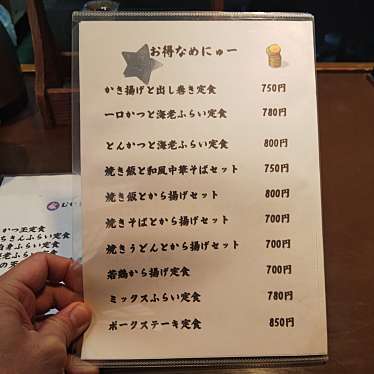 お得なめにゅー
かき揚げと出し巻き定食 750円
一口かつと海老ふらい定食 780円
とんかつと海老ふらい定食 800円
焼き飯と和風中華そばセット 750円
焼き飯とから揚げセット 800円
焼きそばとから揚げセット 700円
焼きうどんとから揚げセット 700円
若鶏から揚げ定食 700円
ミックスふらい定食 780円
ポークステーキ定食 850円
かつ玉定食
ちきんふらい定食
白身ふらい定食
海老ふらい定食